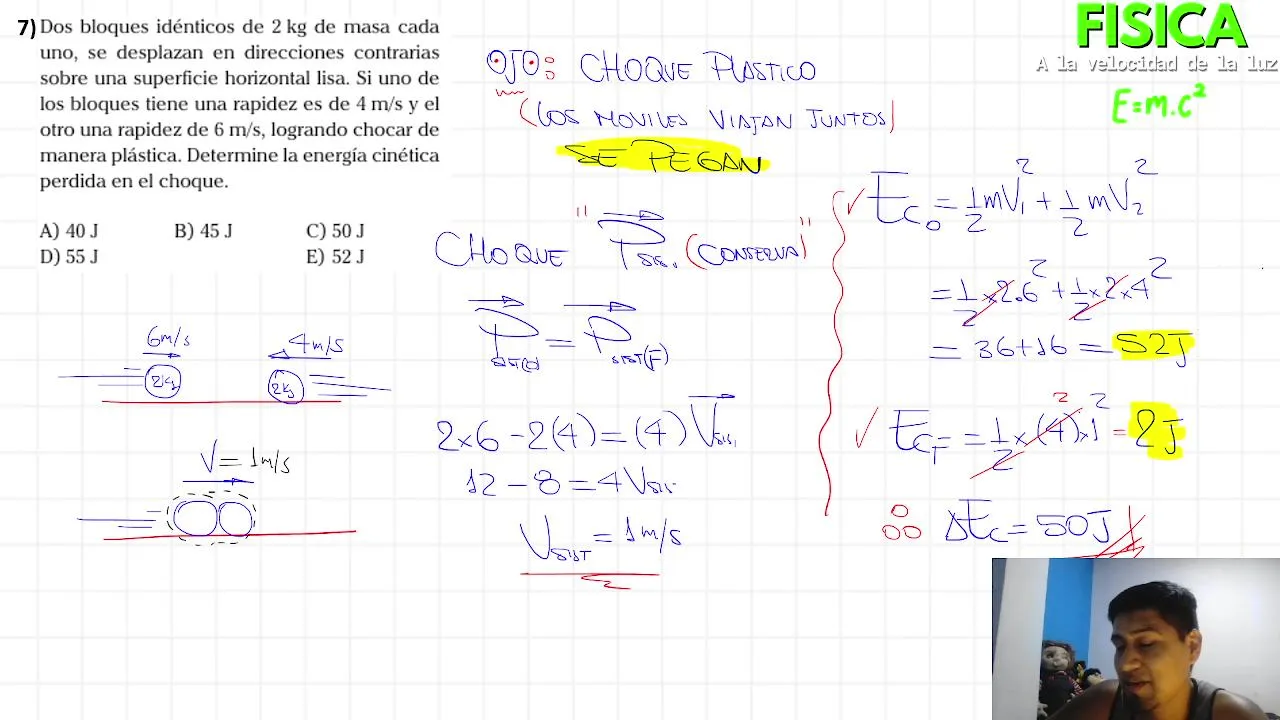 7) Dos bloques idénticos de 2 kg de masa cada
uno, se desplazan en direcciones contrarias
sobre una superficie horizontal lisa. Si uno de
los bloques tiene una rapidez es de 4 m/s y el
otro una rapidez de 6 m/s, logrando chocar de
manera plástica. Determine la energía cinética
perdida en el choque.
A) 40 J B) 45 J C) 50 J
D) 55 J E) 52 J
6m/s 4m/s
2kg 2kg
V = 1m/s
OJO: CHOQUE PLASTICO
(LOS MOVILES VIAJAN JUNTOS)
SE PEGAN
CHOQUE "P sis. (CONSERVA)"
P sist(o) = P sist(F)
2×6 - 2(4) = (4) V sis.
12 - 8 = 4 V sis.
V SIST = 1m/s
FISICA
A la velocidad de la luz
E=m.c²
✓ Ec₀ = 1/2 mV₁² + 1/2 mV₂²
= 1/2 × 2.6² + 1/2 × 2 × 4²
= 36+16 = 52J
✓ Ec_F = 1/2 × (4)² × 1² = 2J
∴ ΔEc = 50J